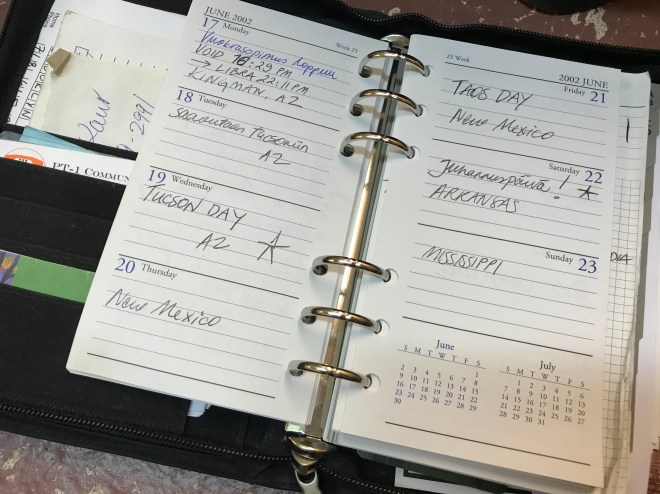 JUNE 2002
17 Monday Week 25
Vuokrasopimus loppuu
VOID :29 PM
→ LIBRA 22:11 PM
KINGMAN, AZ
18 Tuesday
saavutaan Tucsoniin
AZ
19 Wednesday
TUCSON DAY
AZ
20 Thursday
New Mexico
25 Week 2002 JUNE
Friday 21
TAOS DAY
New Mexico
Saturday 22
Juhannuspäivä!
ARKANSAS
Sunday 23
MISSISSIPPI
June
S M T W T F S
1
2 3 4 5 6 7 8
9 10 11 12 13 14 15
16 17 18 19 20 21 22
23 24 25 26 27 28 29
30
July
S M T W T F S
1 2 3 4 5 6
7 8 9 10 11 12 13
14 15 16 17 18 19 20
21 22 23 24 25 26 27
28 29 30 31
PT-1 COMMUN
DIA